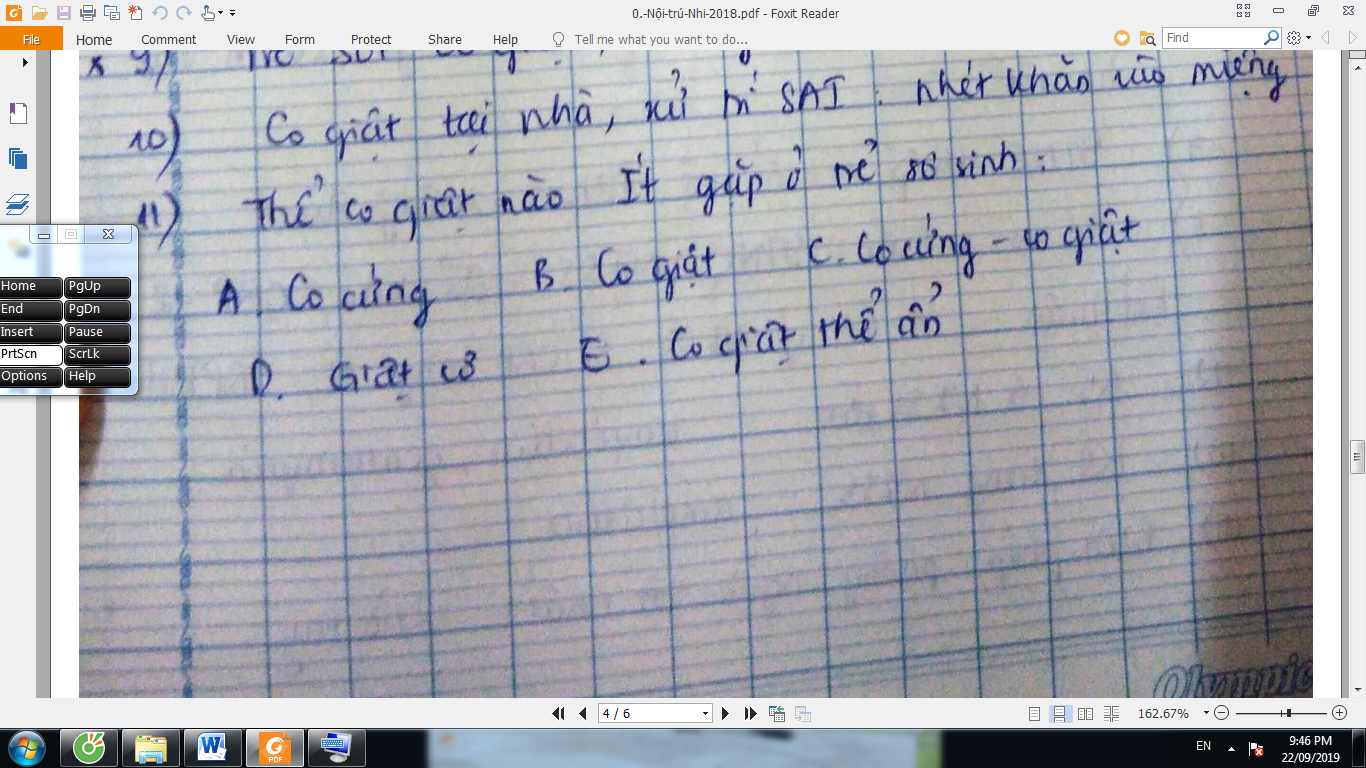 0.-Nội-trú-Nhi-2018.pdf - Foxit Reader
File Home Comment View Form Protect Share Help Tell me what you want to do... Find
9)
10) Co giật tại nhà, xử trí SAI : nhét khăn vào miệng
11) Thể co giật nào Ít gặp ở trẻ sơ sinh :
A. Co cứng B. Co giật C. Co cứng – co giật
D. Giật cơ E. Co giật thể ẩn
Home PgUp
End PgDn
Insert Pause
PrtScn ScrLk
Options Help
4 / 6 162.67%
PDF
EN 9:46 PM
22/09/2019